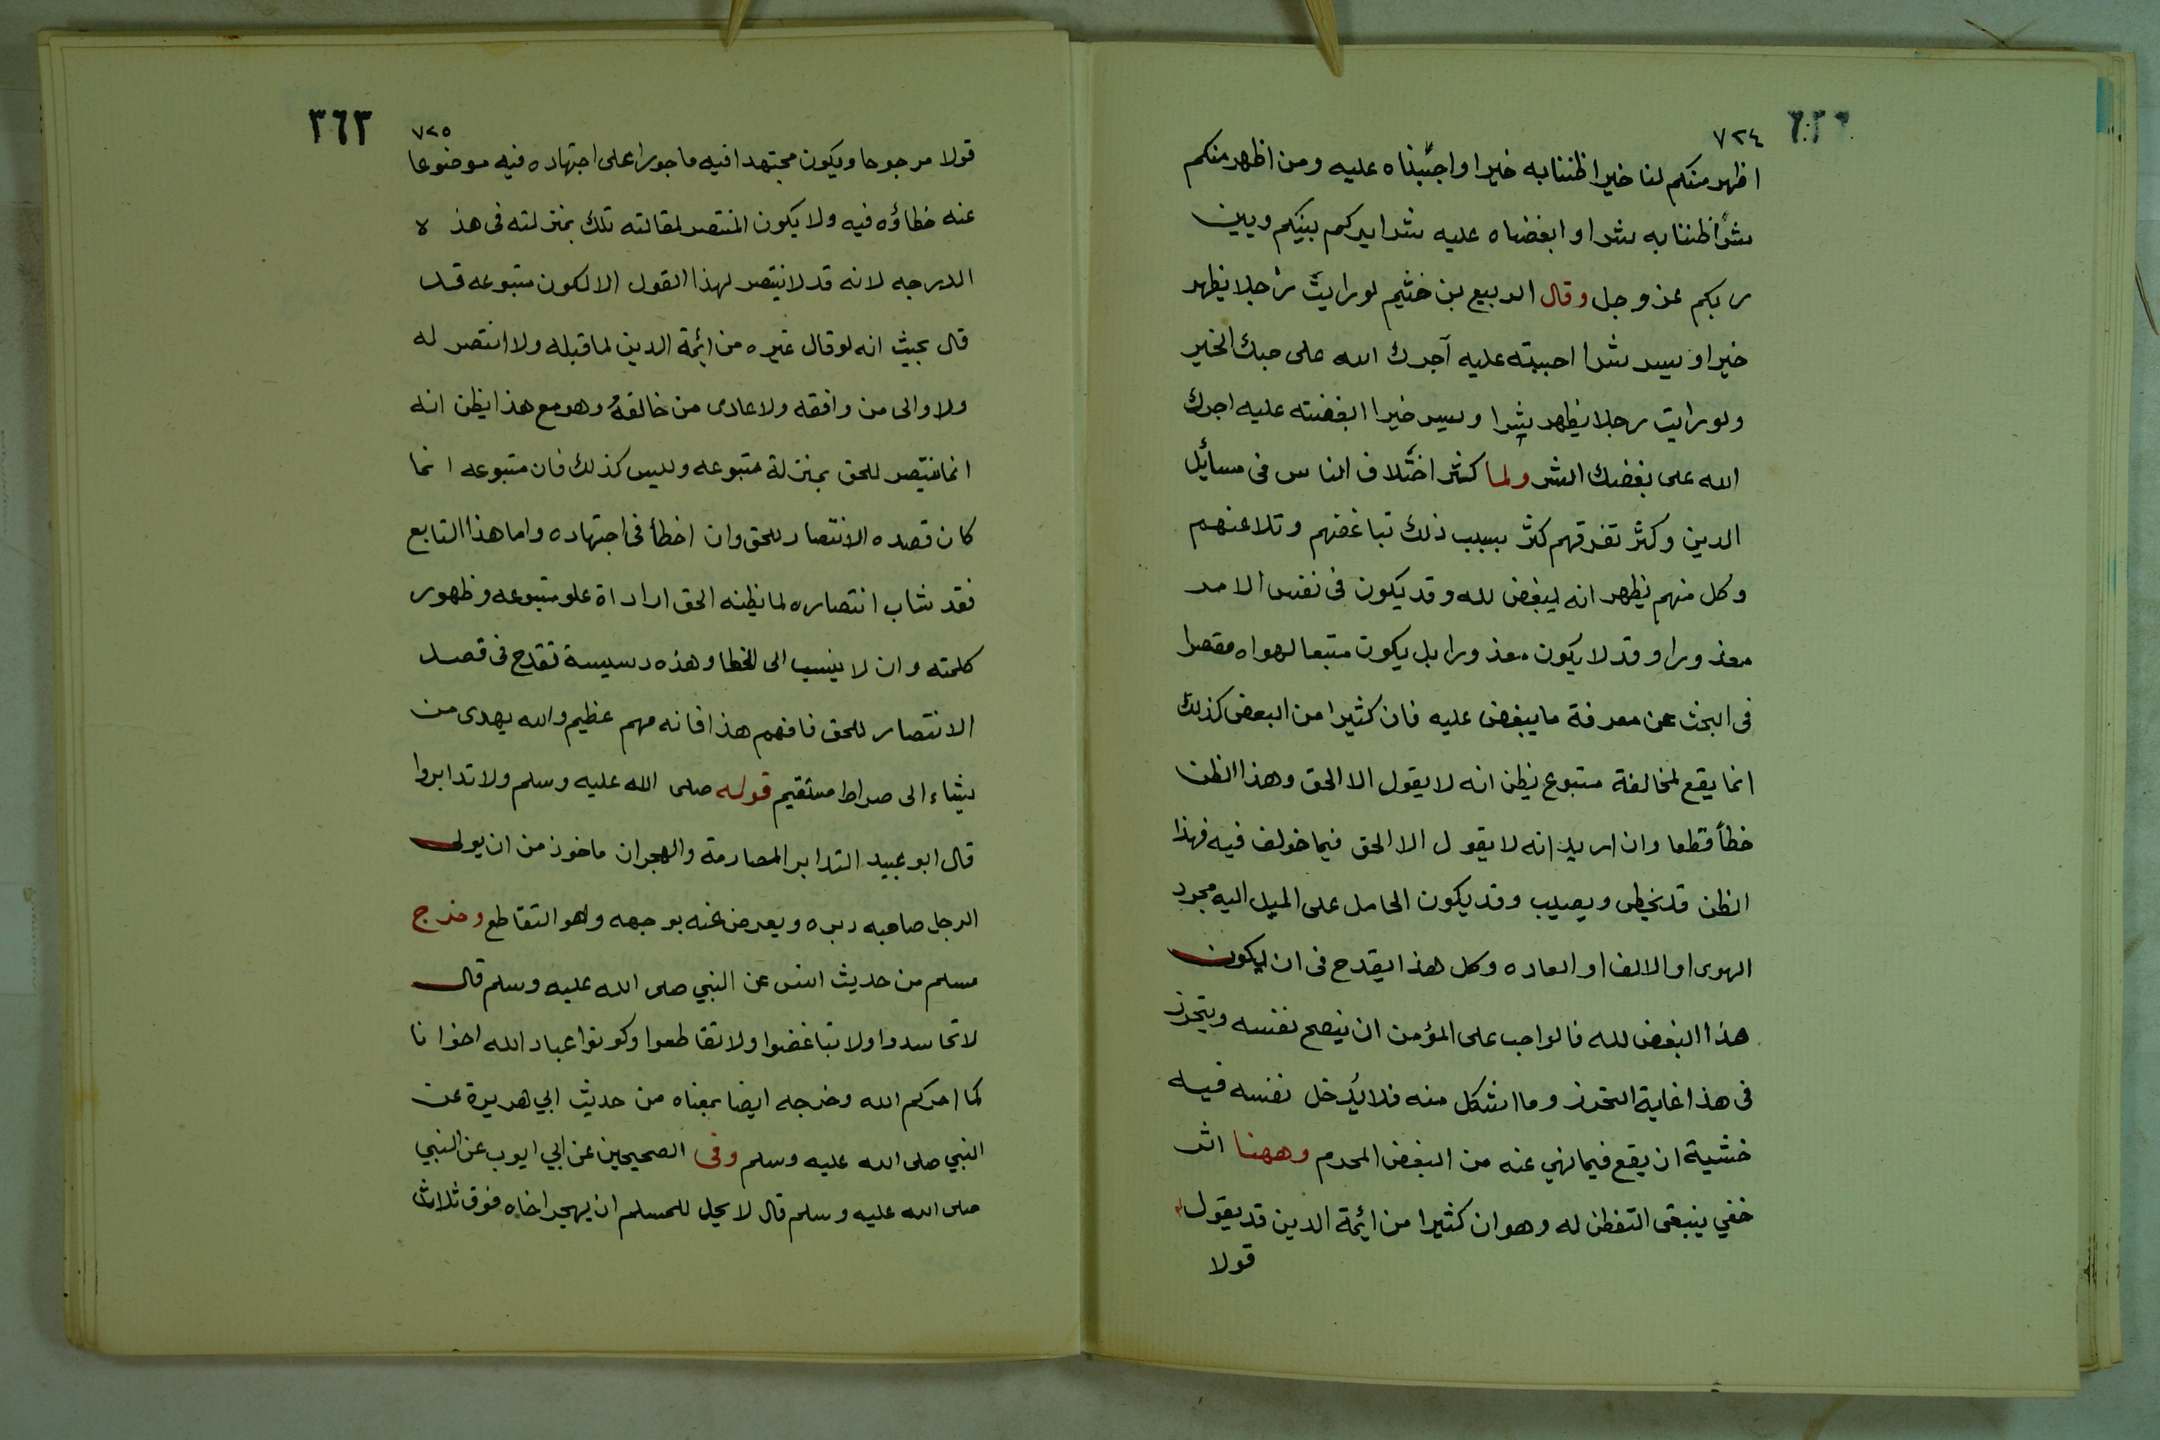 ٧٢٤
اظهر منكم لنا خيرا ظننا به خيرا واحببناه عليه ومن اظهر منكم
شرا ظننا به شرا وابغضناه عليه شرايركم بينكم وبين
ربكم عز وجل وقال الربيع بن خثيم لو رايت رجلا يظهر
خيرا ويسر شرا احببته عليه آجرك الله على حبك الخير
ولو رايت رجلا يظهر شرا ويسر خيرا ابغضته عليه اجرك
الله على بغضك الشر ولما كثر اختلاف الناس فى مسائل
الدين وكثر تفرقهم كثر بسبب ذلك تباغضهم وتلاعنهم
وكل منهم يظهر انه يبغض لله وقد يكون فى نفس الامر
معذورا وقد لا يكون معذورا بل يكون متبعا لهواه مقصرا
فى البحث عن معرفة ما يبغض عليه فان كثيرا من البغض كذلك
انما يقع لمخالفة متبوع يظن انه لا يقول الا الحق وهذا الظن
خطأ قطعا وان اريد انه لا يقول الا الحق فيما خولف فيه فهذا
الظن قد يخطى ويصيب وقد يكون الحامل على الميل اليه مجرد
الهوى او الالف او العاده وكل هذا يقدح فى ان يكون
هذا البغض لله فالواجب على المؤمن ان ينصح نفسه ويتحرز
فى هذا غاية التحرز وما اشكل منه فلا يُدخل نفسه فيه
خشية ان يقع فيما نهي عنه من البغض المحرم وههنا اثر
خفي ينبغى التفطن له وهو ان كثيرا من ائمة الدين قد يقول
قولا
٣٦٣
٧٢٥
قولا مرجوحا ويكون مجتهدا فيه ماجورا على اجتهاده فيه موضوعا
عنه خطاؤه فيه ولا يكون المنتصر لمقالته تلك بمنزلته فى هذه
الدرجه لانه قد لا ينتصر لهذا القول الا لكون متبوعه قد
قال بحيث انه لو قال غيره من ائمة الدين لما قبله ولا انتصر له
ولا والى من وافقه ولا عادى من خالفه وهو مع هذا يظن انه
انما ينتصر للحق بمنزلة متبوعه وليس كذلك فان متبوعه انما
كان قصده الانتصار للحق وان اخطأ فى اجتهاده واما هذا التابع
فقد شاب انتصاره لما يظنه الحق ارادة علو متبوعه وظهور
كلمته وان لا ينسب الى الخطا وهذه دسيسة تقدح فى قصد
الانتصار للحق فافهم هذا فانه مهم عظيم والله يهدى من
يشاء الى صراط مستقيم قوله صلى الله عليه وسلم ولا تدابروا
قال ابو عبيد التدابر المصارمة والهجران ماخوذ من ان يولى
الرجل صاحبه دبره ويعرض عنه بوجهه وهو التقاطع وخرج
مسلم من حديث انس عن النبي صلى الله عليه وسلم قال
لا تحاسدوا ولا تباغضوا ولا تقاطعوا وكونوا عباد الله اخوانا
كما امركم الله وخرجه ايضا بمعناه من حديث ابي هريرة عن
النبي صلى الله عليه وسلم وفى الصحيحين عن ابي ايوب عن النبي
صلى الله عليه وسلم قال لا يحل للمسلم ان يهجر اخاه فوق ثلاث